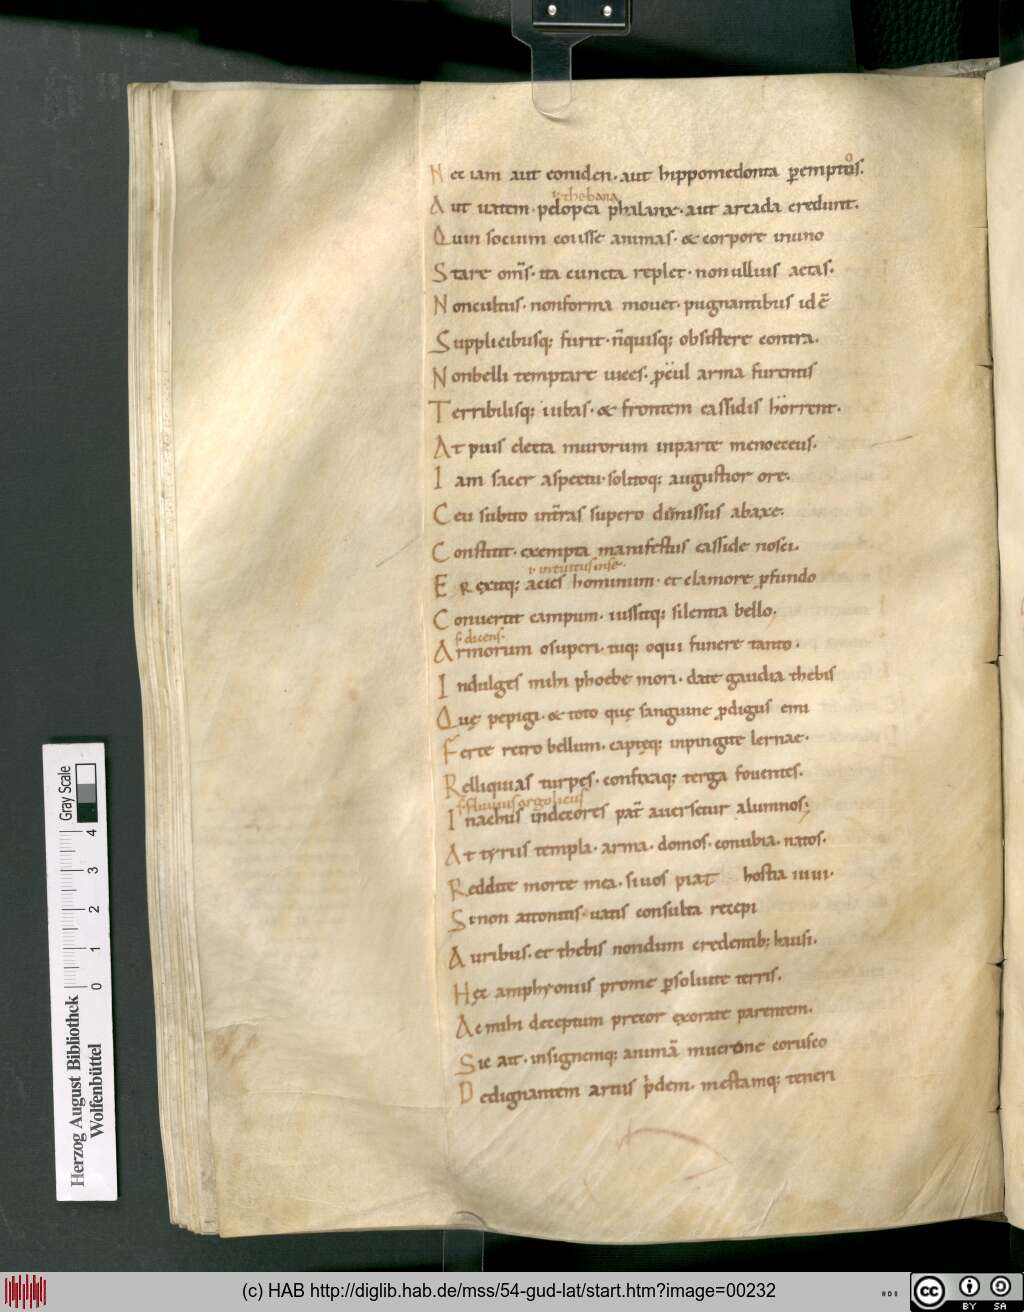 N ec iam aut coniden. aut hippomedonta ꝑemptūs.
ł thebana
A ut uatem. pelopea phalanx. aut arcada credunt.
Q uin socium coisse animas. & corpore in uno
S tare om̄s. ita cuncta replet. non ullius aetas.
N on cultus. non forma mouet. pugnantibus id ē
S upplicibusq; furit. n̄ quisq; obsistere contra.
N on belli temptare uices. ꝓcul arma furentis
T erribilisq; iubas. & frontem cassidis horrent.
A t pius electa murorum in parte menoeceus.
I am sacer aspectu. solitoq; augustior ore.
C eu subito in t̄ras supero dimissus ab axe.
C onstitit. exempta manifestus casside nosci.
ł intuitus in se.
E R exitq; acies hominum. et clamore ꝓfundo
C onuertit campum. iussitq; silentia bello.
s. dicens.
A rmorum o superi. tuq; o qui funere tanto.
I ndulges mihi phoebe mori. date gaudia thebis
Q uę pepigi. & toto quę sanguine ꝓdigus emi
F erte retro bellum. captęq; inpingite lernae.
R elliquias turpęs. confixaq; terga fouentes.
s. fluuius argolicus
I nachus indecores pat̄ auersetur alumnos;
A t tyrus templa. arma. domos. conubia. natos.
R eddite morte mea. si uos piat hostia iuui.
S i non attonitis uatis consulta recepi
A uribus. et thebis nondum credentib; hausi.
H ęc amphyoniis pro me ꝑsoluite terris.
A c mihi deceptum precor exorate parentem.
S ic ait. insignemq; animā mucrone corusco
D edignantem artus p̄dem. mestamq; teneri
Herzog August Bibliothek
Wolfenbüttel
0 1 2 3 4
Gray Scale
(c) HAB http://diglib.hab.de/mss/54-gud-lat/start.htm?image=00232
cc BY SA